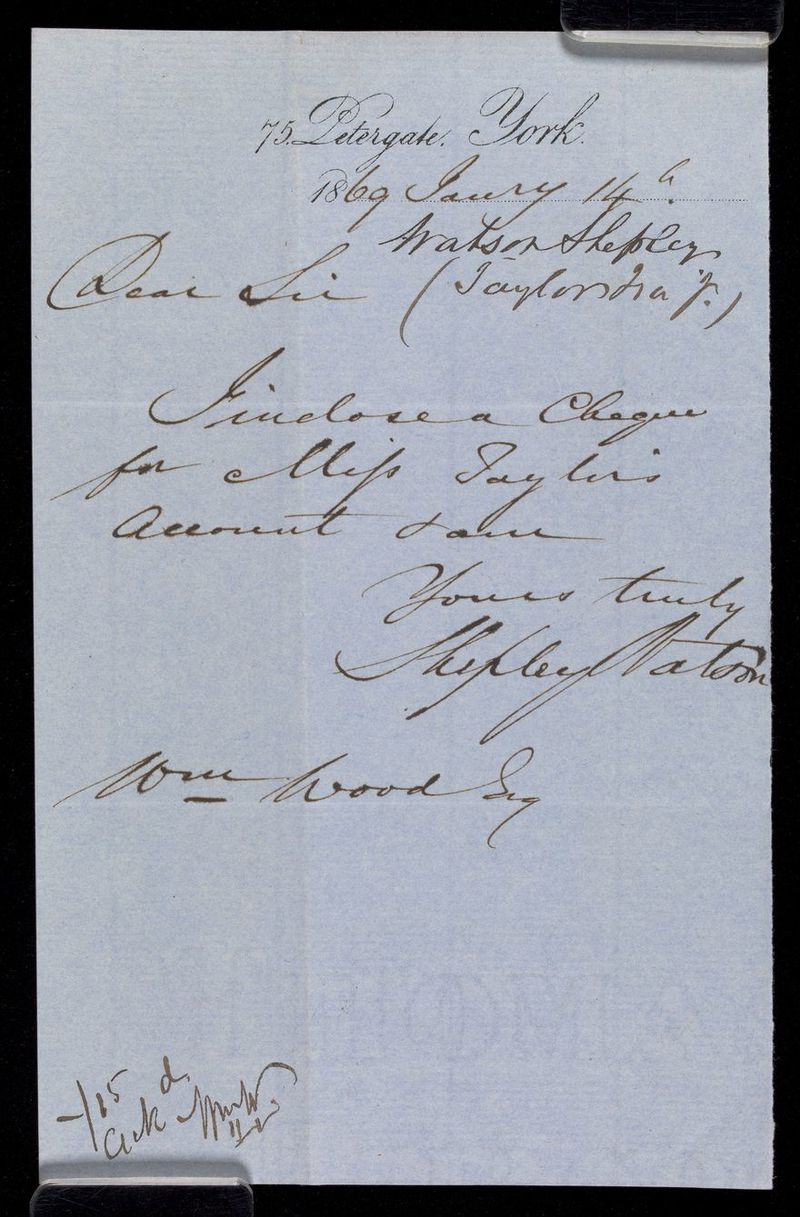 75. Petergate. York.
1869 Jany 14th
Watson Shepley
Dear Sir (Taylors
I inclose a Cheque
for Miss Taylors
Account & am
Yours truly
Shepley Watson
Wm Wood Esq
15
Ackd WmW